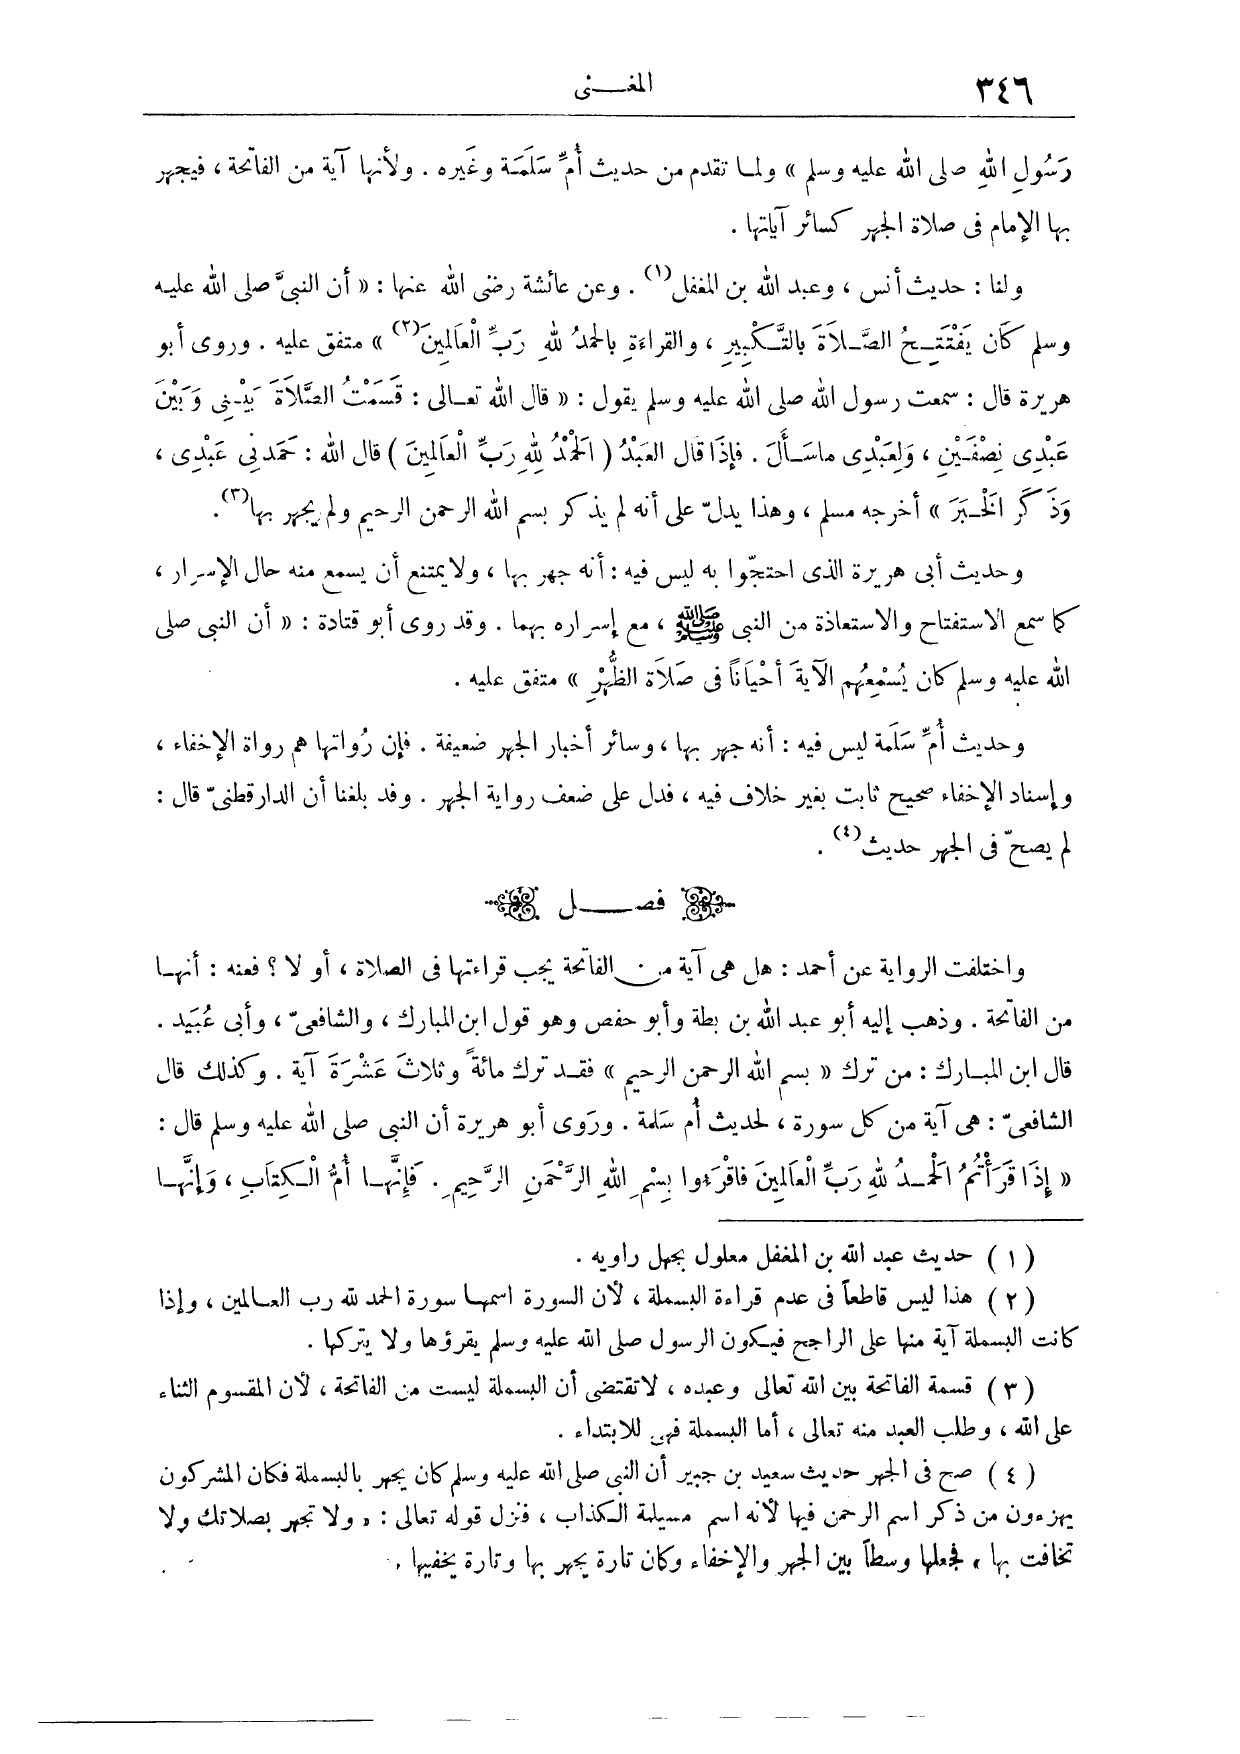 ٣٤٦
المغـــنى
رَسُولِ اللهِ صلى الله عليه وسلم » ولمــا تقدم من حديث أُمِّ سَلَمَة وغَيره . ولأنها آية من الفاتحة ، فيجهر
بها الإمام فى صلاة الجهر كسائر آياتها .
ولنا : حديث أنس ، وعبد الله بن المغفل(١) . وعن عائشة رضى الله عنها : « أن النبىَّ صلى الله عليـه
وسلم كَان يَفْتَتِـحُ الصَّـلَاةَ بالتَّـكْبِيرِ ، والقراءةِ بالحمدُ للهِ رَبِّ الْعَالَمِينَ(٢) » متفق عليه . وروى أبو
هريرة قال : سمعت رسول الله صلى الله عليه وسلم يقول : « قال الله تعـالى : قَسَمْتُ الصَّلَاةَ بَيْـنِى وَبَيْنَ
عَبْدِى نِصْفَـيْنِ ، وَلِعَبْدِى ماسَـأَلَ . فإِذَا قال العَبْدُ ( الْحَمْدُ لِلهِ رَبِّ الْعَالَمِينَ ) قال الله : حَمَدنِى عَبْدِى ،
وَذَكَرَ الْخَـبَرَ » أخرجه مسلم ، وهذا يدلّ على أنه لم يذكر بسم الله الرحمن الرحيم ولم يجهر بها(٣).
وحديث أبى هريرة الذى احتجّوا به ليس فيه : أنه جهر بها ، ولا يمتنع أن يسمع منه حال الإسرار ،
كما سمع الاستفتاح والاستعاذة من النبى ﷺ ، مع إسراره بهما . وقد روى أبو قتادة : « أن النبى صلى
الله عليه وسلم كان يُسْمِعُهم الآيةَ أحْيَاناً فى صَلَاة الظُّهْرِ » متفق عليه .
وحديث أُمِّ سَلَمة ليس فيه : أنه جهر بها ، وسائر أخبار الجهر ضعيفة . فإن رُواتها هم رواة الإخفاء ،
وإسناد الإخفاء صحيح ثابت بغير خلاف فيه ، فدل على ضعف رواية الجهر . وقد بلغنا أن الدارقطنىّ قال :
لم يصحّ فى الجهر حديث(٤) .
فصـــــل
واختلفت الرواية عن أحمد : هل هى آية من الفاتحة يجب قراءتها فى الصلاة ، أو لا ؟ فعنه : أنهــا
من الفاتحة . وذهب إليه أبو عبد الله بن بطة وأبو حفص وهو قول ابن المبارك ، والشافعىّ ، وأبى عُبَيد .
قال ابن المبـارك : من ترك « بسم الله الرحمن الرحيم » فقـد ترك مائةً وثلاثَ عَشْرَةَ آية . وكذلك قال
الشافعىّ : هى آية من كل سورة ، لحديث أُم سَلمة . ورَوى أبو هريرة أن النبى صلى الله عليه وسلم قال :
« إِذَا قَرَأْتُمُ الْحَمْـدُ للهِ رَبِّ الْعَالَمِينَ فاقْرَءوا بِسْمِ اللهِ الرَّحْمَنِ الرَّحِيمِ . فَإِنَّهـا أُمُّ الْـكِتَابِ ، وَإِنَّهـا
( ١ ) حديث عبد الله بن المغفل معلول بجهل راويه .
( ٢ ) هذا ليس قاطعاً فى عدم قراءة البسملة ، لأن السورة اسمهـا سورة الحمد لله رب العـالمين ، وإذا
كانت البسملة آية منها على الراجح فيـكون الرسول صلى الله عليه وسلم يقرؤها ولا يتركها .
( ٣ ) قسمة الفاتحة بين الله تعالى وعبده ، لا تقتضى أن البسملة ليست من الفاتحة ، لأن المقسوم الثناء
على الله ، وطلب العبد منه تعالى ، أما البسملة فهى للابتداء .
( ٤ ) صح فى الجهر حديث سعيد بن جبير أن النبى صلى الله عليه وسلم كان يجهر بالبسملة فكان المشركون
يهزءون من ذكر اسم الرحمن فيها لأنه اسم مسيلمة الـكذاب ، فنزل قوله تعالى : « ولا تجهر بصلاتك ولا
تخافت بها » فجعلها وسطاً بين الجهر والإخفاء وكان تارة يجهر بها وتارة يخفيها .